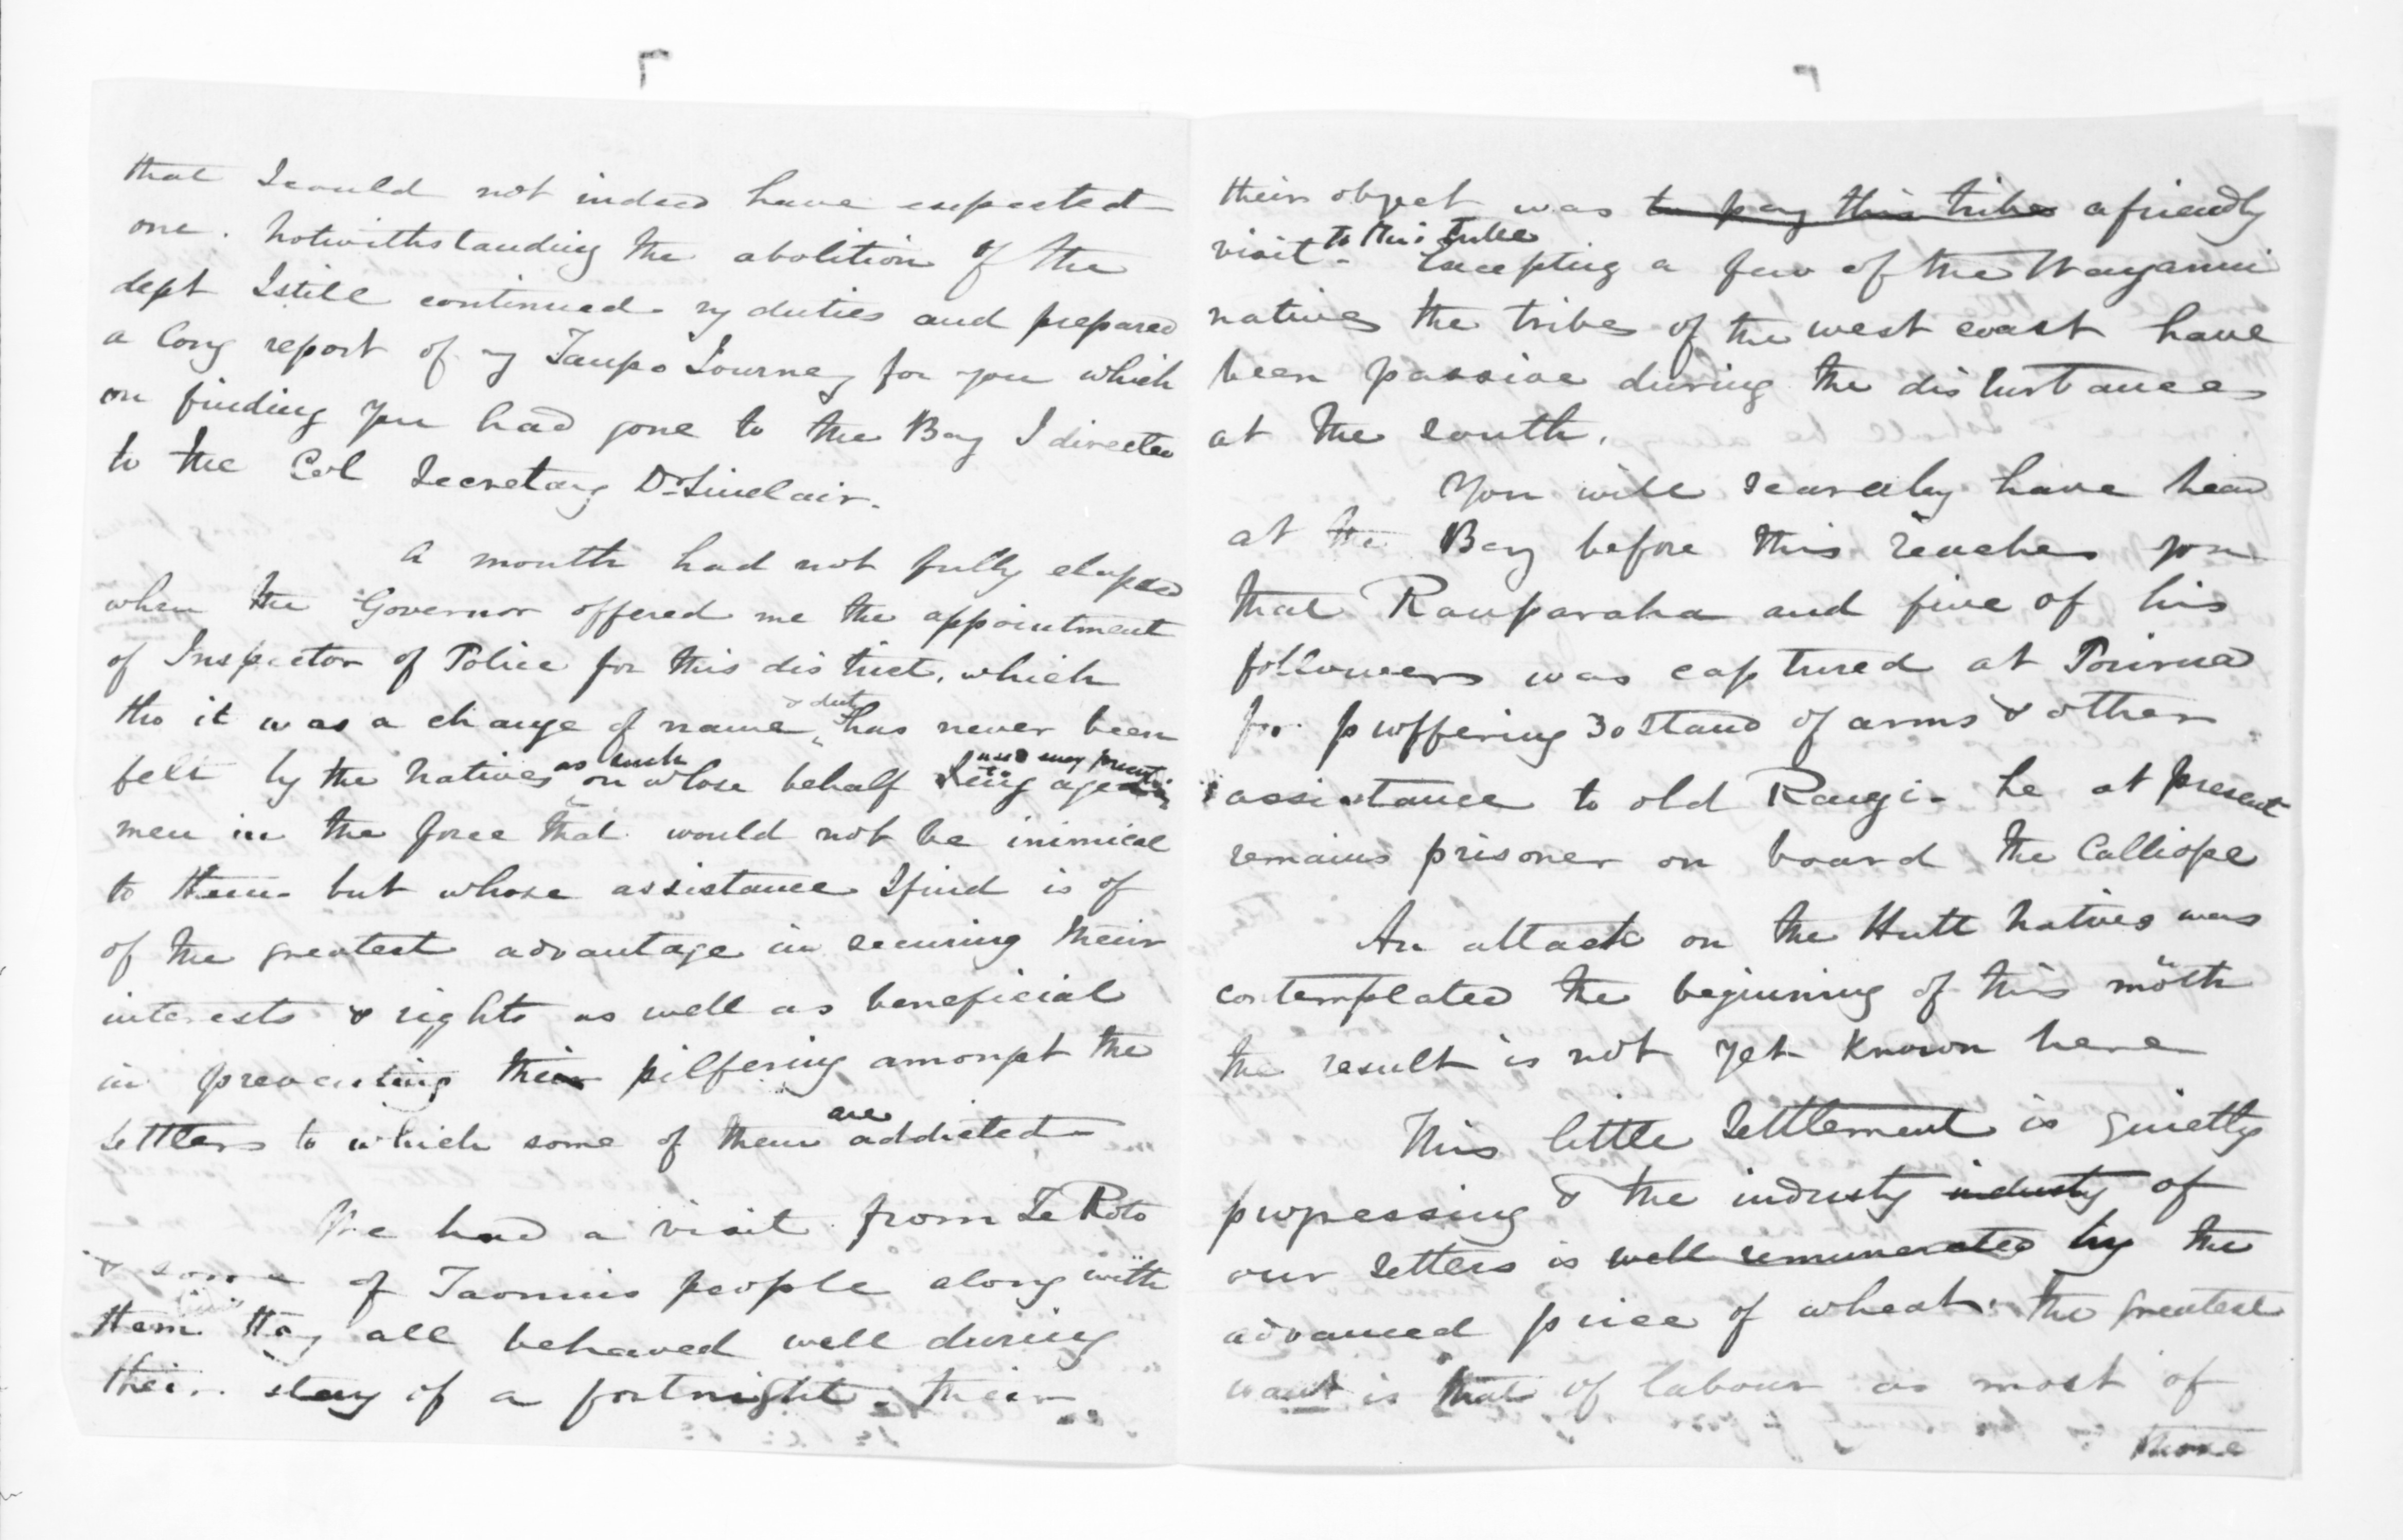 that I could not indeed have expected
one. Notwithstanding the abolition of the
dept I still continued my duties and prepared
a long report of my Taupo Journey for you which
on finding you had gone to the Bay I directed
to the Col Secretary Dr Sinclair.
A month had not fully elapsed
when the Governor offered me the appointment
of Inspector of Police for this district, which
tho it was a change of name & duty has never been
felt by the Natives as such on whose behalf
men in the force that would not be inimical
to them but whose assistance I find is of
of the greatest advantage in securing their
interests & rights as well as beneficial
in preventing their pilfering amongst the
settlers to which some of them are addicted
We had a visit from Te Roto
& some of Taonuis people along with
them they all behaved well during
their stay of a fortnight. their
their object was to pay this tribe a friendly
visit to this tribe. Excepting a few of the Wanganui
natives the tribes of the west coast have
been passive during the disturbances
at the south.
You will scarcely have heard
at the Bay before this reaches you
that Rauparaha and five of his
followers was captured at Porirua
for proffering 30 stand of arms & other
assistance to old Rangi. he at present
remains prisoner on board the Calliope
An attack on the Hutt natives was
contemplated the beginning of this month
the result is not yet known here
This little Settlement is quietly
progressing & the industy industy of
our settlers is well remunerated by the
advanced price of wheat. the greatest
want is that of labour as most of
those